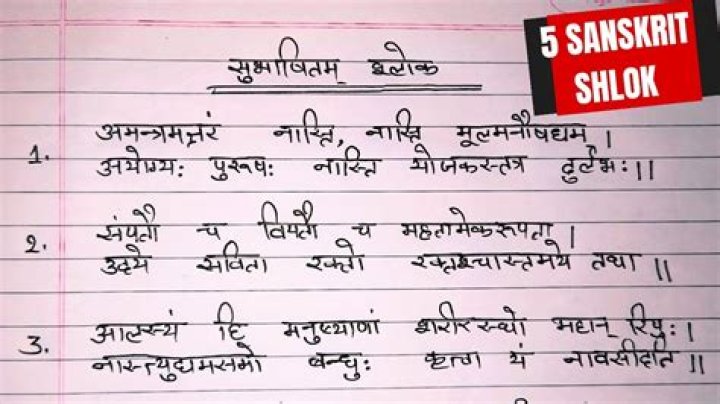 5 SANSKRIT
SHLOK
सुभाषितम् श्लोक
1. अमन्त्रमक्षरं नास्ति, नास्ति मूलमनौषधम् ।
अयोग्यः पुरूषः नास्ति योजकस्तत्र दुर्लभः।।
2. संपतौ च विपतौ च महतामेकरूपता ।
उदये सविता रक्तो रक्तश्चास्तमये तथा ॥
3. आलस्यं हि मनुष्याणां शरीरस्थो महान् रिपुः।
नास्त्युद्यमसमो बन्धुः कृत्वा यं नावसीदति ॥